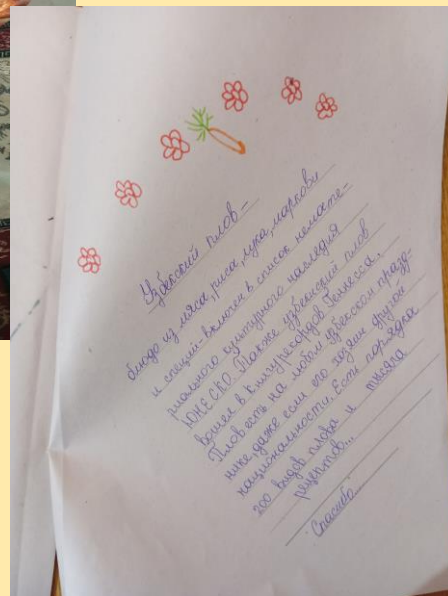 Узбекский плов -
блюдо из мяса, риса, лука, моркови
и специй - включен в список немате-
риального культурного наследия
ЮНЕСКО. Также узбекский плов
вошел в книгу рекордов Гиннесса.
Плов есть на любом узбекском празд-
нике, даже если его хозяин другой
национальности. Есть порядка
200 видов плова и тысяча
рецептов...
Спасибо